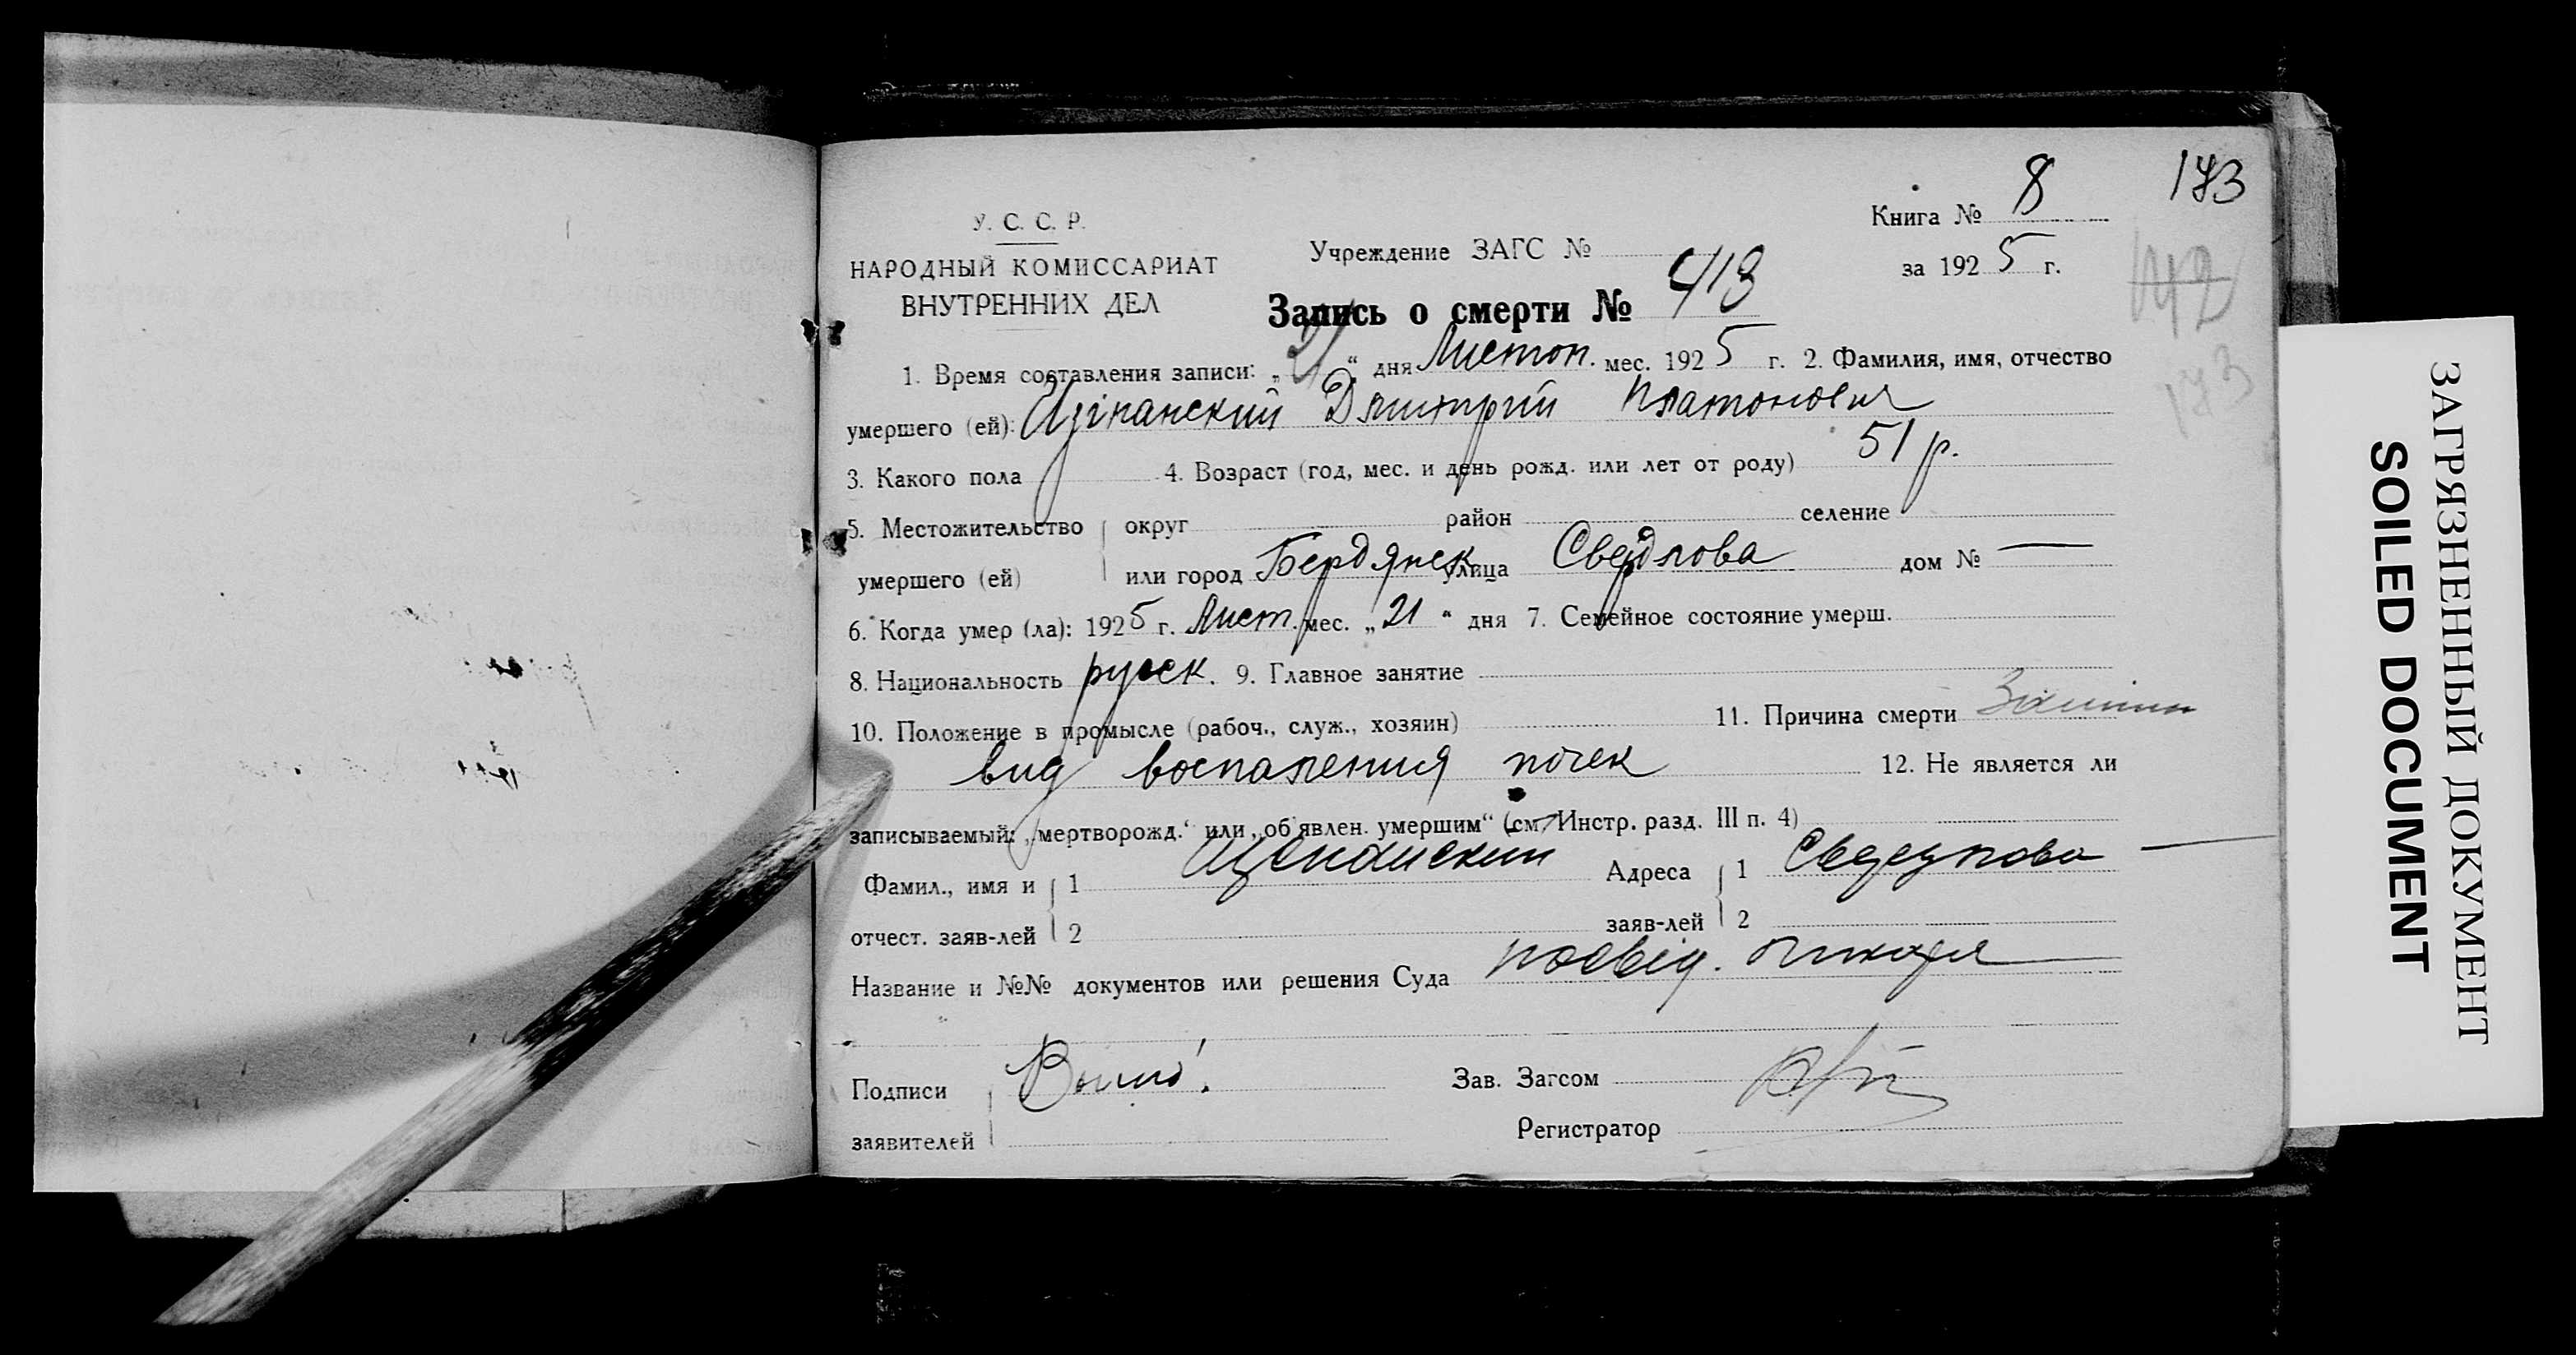 173
Книга № 8
У. С. С. Р.
Учреждение ЗАГС №
НАРОДНЫЙ КОМИССАРИАТ
за 1925 г.
142
ВНУТРЕННИХ ДЕЛ
Запись о смерти № 413
173
1. Время составления записи: „21“ дня Листоп. мес. 1925 г. 2. Фамилия, имя, отчество
умершего (ей): Дмитрий Платонович
3. Какого пола 4. Возраст (год, мес. и день рожд. или лет от роду) 51 р.
5. Местожительство округ район селение
умершего (ей) или город Бердянск улица Свердлова дом № —
6. Когда умер (ла): 1925 г. Лист. мес. „21“ дня 7. Семейное состояние умерш.
8. Национальность русск. 9. Главное занятие
10. Положение в промысле (рабоч., служ., хозяин) 11. Причина смерти
вид воспаления почек 12. Не является ли
записываемый: „мертворожд.“ или „об'явлен. умершим“ (см. Инстр. разд. III п. 4)
Фамил., имя и 1 Адреса 1
отчест. заяв-лей 2 заяв-лей 2
Название и №№ документов или решения Суда посвід. ликаря
Подписи Зав. Загсом
заявителей Регистратор
ЗАГРЯЗНЕННЫЙ ДОКУМЕНТ
SOILED DOCUMENT